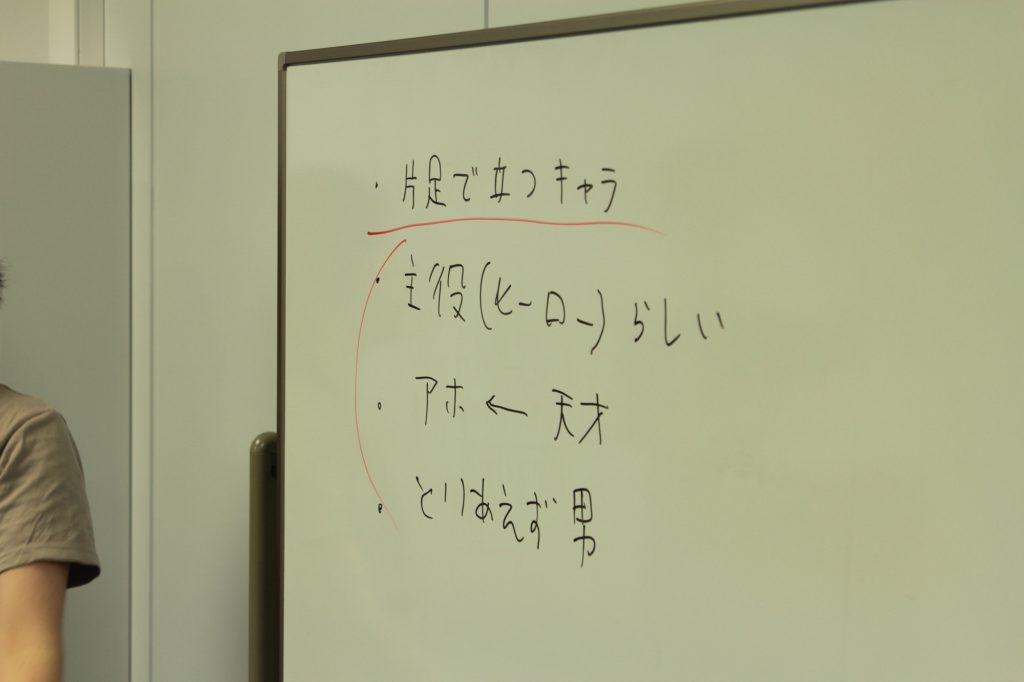 ・片足で立つキャラ
・主役(ヒーロー)らしい
・アホ ← 天才
・とりあえず男